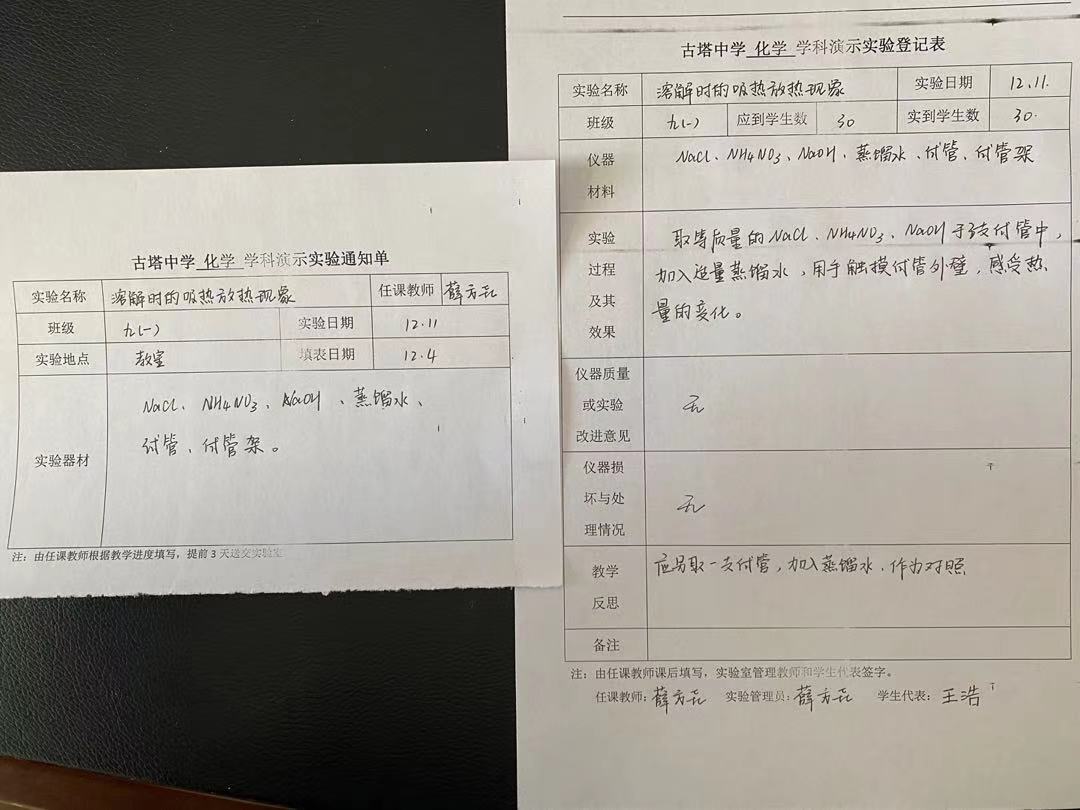 古塔中学 化学 学科演示实验通知单
实验名称 溶解时的吸热放热现象 任课教师 薛方云
班级 九(一) 实验日期 12.11
实验地点 教室 填表日期 12.4
实验器材
NaCl、NH4NO3、NaOH、蒸馏水、
试管、试管架。
注：由任课教师根据教学进度填写，提前 3 天送交实验室
古塔中学 化学 学科演示实验登记表
实验名称 溶解时的吸热放热现象 实验日期 12.11.
班级 九(一) 应到学生数 30 实到学生数 30.
仪器
材料
NaCl、NH4NO3、NaOH、蒸馏水、试管、试管架
实验
过程
及其
效果
取等质量的NaCl、NH4NO3、NaOH于3支试管中，
加入适量蒸馏水，用手触摸试管外壁，感受热
量的变化。
仪器质量
或实验
改进意见
无
仪器损
坏与处
理情况
无
教学
反思
应另取一支试管，加入蒸馏水、作为对照
备注
注：由任课教师课后填写，实验室管理教师和学生代表签字。
任课教师：薛方云 实验管理员：薛方云 学生代表：王浩